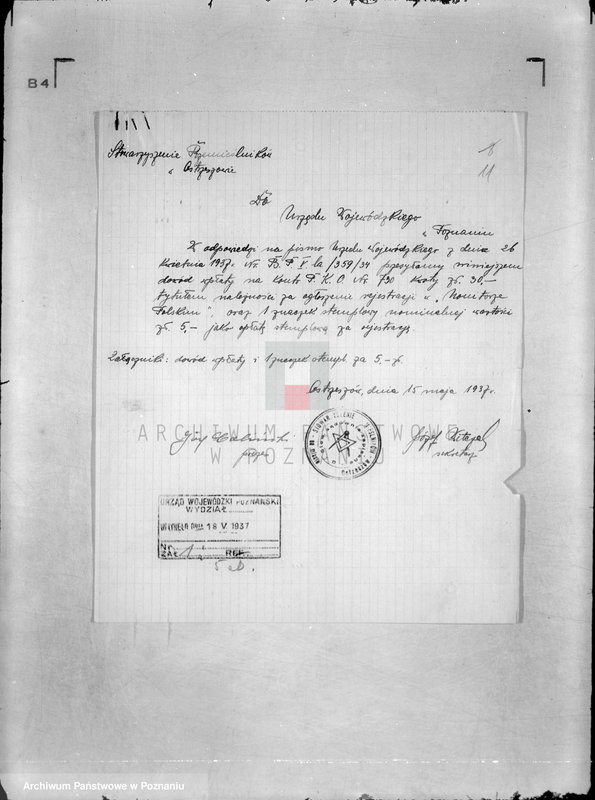 B4
Stowarzyszenie Rzemieślników
w Ostrzeszowie
8
11
Do
Urzędu Wojewódzkiego
w Poznaniu
W odpowiedzi na pismo Urzędu Wojewódzkiego z dnia 26
kwietnia 1937. Nr. B.P.V. 1a/359/34 przesyłamy niniejszem
dowód wpłaty na konto P.K.O. Nr 730 kwoty zł. 30,-
tytułem należności za ogłoszenie rejestracji w „Monitorze
Polskim", oraz 1 znaczek stemplowy nominalnej wartości
zł. 5,- jako opłatę stemplową za rejestrację.
Załączniki: dowód wpłaty i 1 znaczek stempl. za 5,- zł.
Ostrzeszów, dnia 15 maja 1937r.
ARCHIWUM PAŃSTWOWE
W POZNANIU
Józef
prezes
Józef
sekretarz
URZĄD WOJEWÓDZKI POZNAŃSKI
WYDZIAŁ
WPŁYNĘŁO DNIA 18 V. 1937
Nr.
ZAŁ. 1 REF.
Archiwum Państwowe w Poznaniu